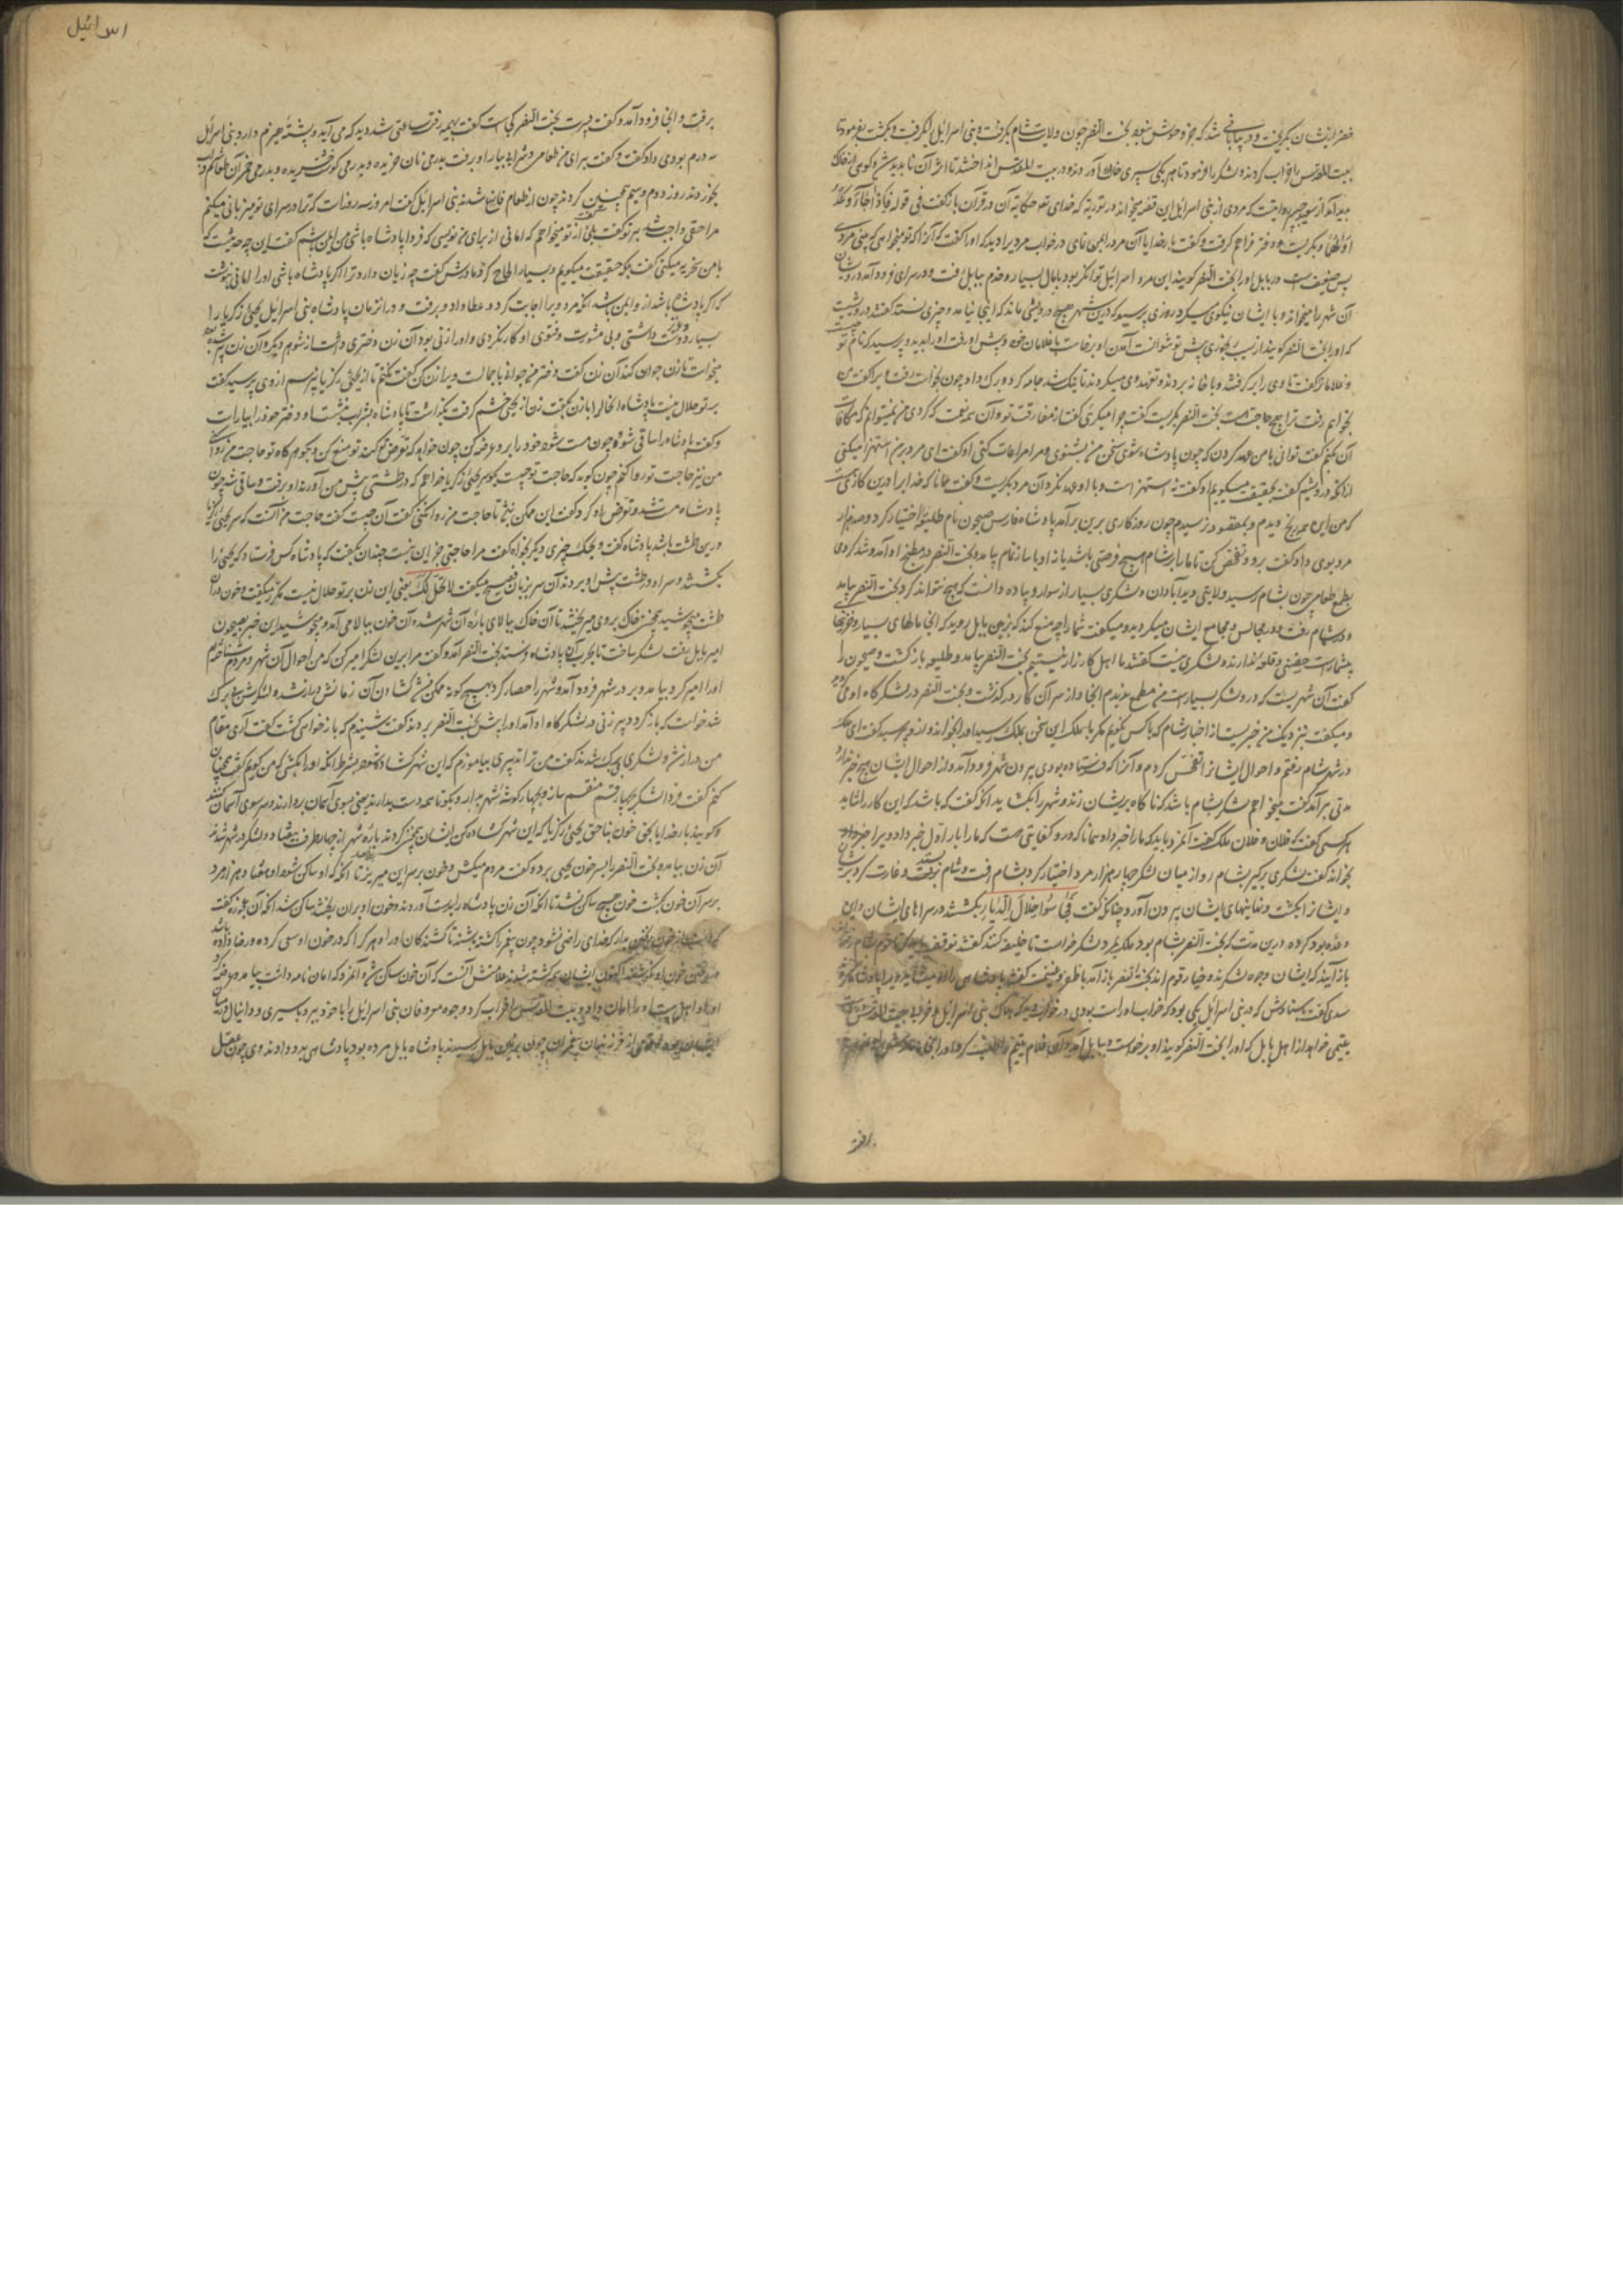 خضر از ایشان بگریخت و در بیابانی شد که جز وحوش نبود بخت النصر چون ولایت شام بگرفت و بنی اسرائیل را بگرفت و بکشت بفرمود تا
بیت المقدس را خراب کردند و لشکر را فرمود تا هر یکی سپری خاک آوردند و در بیت المقدس انداختند تا اثر آن ناپدید شد
مردی از بنی اسرائیل این قصه میخواند در توریة که خدای تعالی حکایة آن در قرآن باز گفت فی قوله فاذا جاء وعد
اولهما و بگریست و گفت بار خدایا آن مرد را بمن نمای در خواب مرد را دید که او را گفت که آنرا که تو میخواهی که بینی مردی
ضعیفست در بابل او را بخت النصر گویند این مرد اسرائیلی توانگر بود با مال بسیار و خدم ببابل رفت و در سرای فرود آمد درویشان
آن شهر را میخواند و با ایشان نیکوی میکرد روزی پرسید که درین شهر هیچ درویشی ماند که اینجا نیامد
که او را بخت النصر گویند از سبب رنجوری پیش تو نتوانست آمدن او برخاست با غلامان خود و پیش او رفت او را بدید و پرسید که نام تو چیست
و غلامانرا گفت تا وی را بر گرفتند و با خانه بردند و تعهد وی میکردند تا نیک شد جامه کرد و برگ داد چون بخواست رفت ویرا گفت من
بخواهم رفت ترا هیچ حاجت هست بخت النصر بگریست گفت چرا میگریی گفت از مفارقت تو و آن همه نعمت که کردی من نمیتوانم که مکافات
آن کنم گفت توانی با من عهد کردن که چون پادشاه شوی سخن من بشنوی و مرا مراعات کنی او گفت ای مرد بر من استهزا میکنی
گفت بحقیقت میگویم او گفت نه استهزاست و با او عهد نکرد آن مرد بگریست و گفت همانا که خدایرا درین کاری هست
که من این همه رنج دیدم و بمقصود نرسیدم چون روزگاری برین برآمد پادشاه فارس صیحون نام طلیعه اختیار کرد و صد هزار
مرد بوی داد گفت برو و تفحص کن تا ما را بر شام هیچ فرصتی باشد یا نه او با ساز تمام بیامد و بخت النصر در مطبخ او آمد و شد کردی
بطمع طعام چون بشام رسید ولایتی دید آبادان و لشکری بسیار از سوار و پیاده دانست که هیچ نتواند کرد بخت النصر بیامد
و در شام رفت و در مجالس و مجامع ایشان میگردید و میگفت شما را چه منع کند که بزمین بابل روید که آنجا مالهای بسیار و خزینها
بیشمارست و قلعه ندارند و لشکری نیست گفتند ما اهل کارزار نیستیم بخت النصر بیامد و طلیعه باز گشت و صیحون را
گفت آن شهریست که درو لشکر بسیارست من مطمع ندیدم آنجا و از سر آن کار در گذشت و بخت النصر در لشکرگاه او می گردید
و میگفت نزدیک من خبریست از اخبار شام که با کس نگویم مگر با ملک این سخن بملک رسید او را بخواند و ازو پرسید گفت ای ملک
در شهر شام رفتم و احوال ایشانرا تفحص کردم و آنرا که فرستاده بودی بیرون شهر فرود آمد و از احوال ایشان هیچ خبر ندارد
مدتی برآمد گفت میخواهم لشکر بشام باشد که ناگاه بریشان زند و شهر را بگشاید آنگه گفت که باشد که این کار را شاید
هر کسی گفت که فلان و فلان ملک گفت آن مرد باید که ما را خبر داد همانا که درو کفایتی هست که ما را بار اول خبر داد ویرا
بخواند گفت لشکری بر گیر بشام رو از میان لشکر چهار هزار مرد اختیار کرد بشام رفت و شام بستد و غارت کرد
و ایشانرا بکشت و نهانیهای ایشان بیرون آورد چنانکه گفت فجاسوا خلال الدیار بگشتند در سراهای ایشان و این
وعده بود کرده درین مدت که بخت النصر بشام بود ملک بمرد لشکر خواست تا خلیفه کنند گفتند توقف باید کرد تا قوم شام
باز آیند که ایشان وجوه لشکرند و خیار قوم اند بخت النصر باز آمد با ظفر و غنیمت گفتند پادشاهی را او میشاید ویرا پادشا کردند
سدی گفت باسنادش که در بنی اسرائیل یکی بود که خواب او راست بودی در خواب دید که هلاک بنی اسرائیل و خراب بیت المقدس
یتیمی خواهد از اهل بابل که او را بخت النصر گویند او برخواست و ببابل آمد و آن غلام یتیم را طلب کرد
برفت
اسرائیل
برفت و آنجا فرود آمد و گفت پسرت بخت النصر کجاست گفت بهیمه رفت ساعتی شد دید که می آید و پشته هیزم دارد بنی اسرائیل
سه درم بوی داد گفت برای من طعامی و شرابی بیار او برفت بدرمی نان خرید و بدرمی گوشت خرید و بدرمی خمر آن طعام
بخوردند روز دوم و سیم همچنین کردند چون از طعام فارغ شدند بنی اسرائیلی گفت امروز سه روزست که ترا در سرای تو میزبانی میکنم
مرا حقی واجب شد بر تو گفت بلی گفت از تو میخواهم که امانی از برای من نویسی که فردا پادشاه باشی من ایمن باشم گفت این چه حدیثست که
با من سخریه میکنی گفت بلکه حقیقت میگویم و بسیار الحاح کرد مادرش گفت چه زیان دارد ترا اگر پادشاه باشی او را امانی نوشت
که اگر پادشاه باشد ازو ایمن باشد آنگه مرد ویرا اجابت کرد و عطا داد و برفت و در آن زمان پادشاه بنی اسرائیل یحیی زکریا را
بسیار دوست داشتی و بی مشورت و فتوی او کار نکردی و او را زنی بود آن زن دختری داشت از شوهر دیگر و آن زن پیر شده بود
میخواست تا زن جوان کند آن زن گفت دختر من جوانه با جمالست ویرا زن کن گفت نکنم تا از یحیی زکریا نپرسم از وی پرسید گفت
بر تو حلال نیست پادشاه این حال را با زن بگفت زن از یحیی خشم گرفت بگذاشت تا پادشاه بشراب بنشست و دختر خود را بیاراست
و گفت پادشاه را ساقی شو و چون مست شود خود را برو عرضه کن چون خواهد که تعرض تو کند تو منع کن و بگو هر گاه تو حاجت من روا کنی
من نیز حاجت تو روا کنم چون گوید که حاجت تو چیست بگو سر یحیی زکریا خواهم که در طشتی پیش من آورند او برفت و ساقی شد چون
پادشاه مست شد و تعرض او کرد گفت این ممکن نیست تا حاجت من روا نکنی گفت آن چیست گفت حاجت من آنست که سر یحیی زکریا
درین طشت باشد پادشاه گفت ویلک چیزی دیگر بخواه گفت مرا حاجتی جز این نیست چندان بگفت که پادشاه کس فرستاد که یحیی را
بکشتند و سر او در طشت پیش او بردند آن سر بزبان فصیح میگفت لا تحل لک یعنی این زن بر تو حلال نیست مکرر میگفت و خون در آن
طشت میجوشید بگفت تا خاک بروی میریختند تا آن خاک ببالای باره آن شهر شد و آن خون ببالا می آمد و میجوشید این خبر بصیحون
امیر بابل رفت لشکر ساخت تا بحرب آن پادشاه فرستد بخت النصر آمد و گفت مرا برین لشکر امیر کن که من احوال آن شهر و مردم شناخته ام
او را امیر کرد بیامد و بر در شهر فرود آمد و شهر را حصار کرد بهیچ گونه ممکن نشد گشادن آن زمانش دراز شد و لشکرش بی برگ
شد خواست که باز گردد پیر زنی در لشکرگاه او آمد او را پیش بخت النصر بردند گفت شنیدم که باز خواهی گشت گفت آری مقام
من دراز شد و لشکر بی برگ شدند گفت من ترا تدبیری بیاموزم که این شهر گشاده شود بشرط آنکه او را بکشی که من گویم گفت چنان
کنم گفت فردا لشکر بچهار قسم منقسم ساز و بچهار گوشه شهر بدار و بگو تا همه دست بردارند یعنی بسوی آسمان
و گویند بار خدایا بحق خون بناحق یحیی زکریا که این شهر گشاده کن ایشان همچنین کردند باره شهر از چهار طرف بیفتاد و لشکر در شهر شدند
آن زن بیامد و بخت النصر را بسر خون یحیی برد و گفت مردم میکش و خون بر سر این میریز تا آنگه که او ساکن شود او هفتاد هزار مرد
بر سر آن خون بکشت خون هیچ ساکن نشد تا آنکه آن زن پادشاه را بدست آوردند و خون او بر آن ریختند ساکن شد آنگه آن عجوزه گفت
خدای راضی نشود چون پیغمبر را کشته باشند تا کشندگان او را و هر کرا که در خون او سعی کرده و رضا داده باشد
آن خون ساکن شد و آن مرد که امان نامه داشت بیامد
او را و اهل بیت او را امان داد و بیت المقدس خراب کرد و وجوه معروفان بنی اسرائیل را با خود ببرد باسیری و دانیال در میان
ایشان بود و قومی از فرزندان پیغمبران چون بزمین بابل رسیدند پادشاه بابل مرده بود پادشاهی بدو دادند